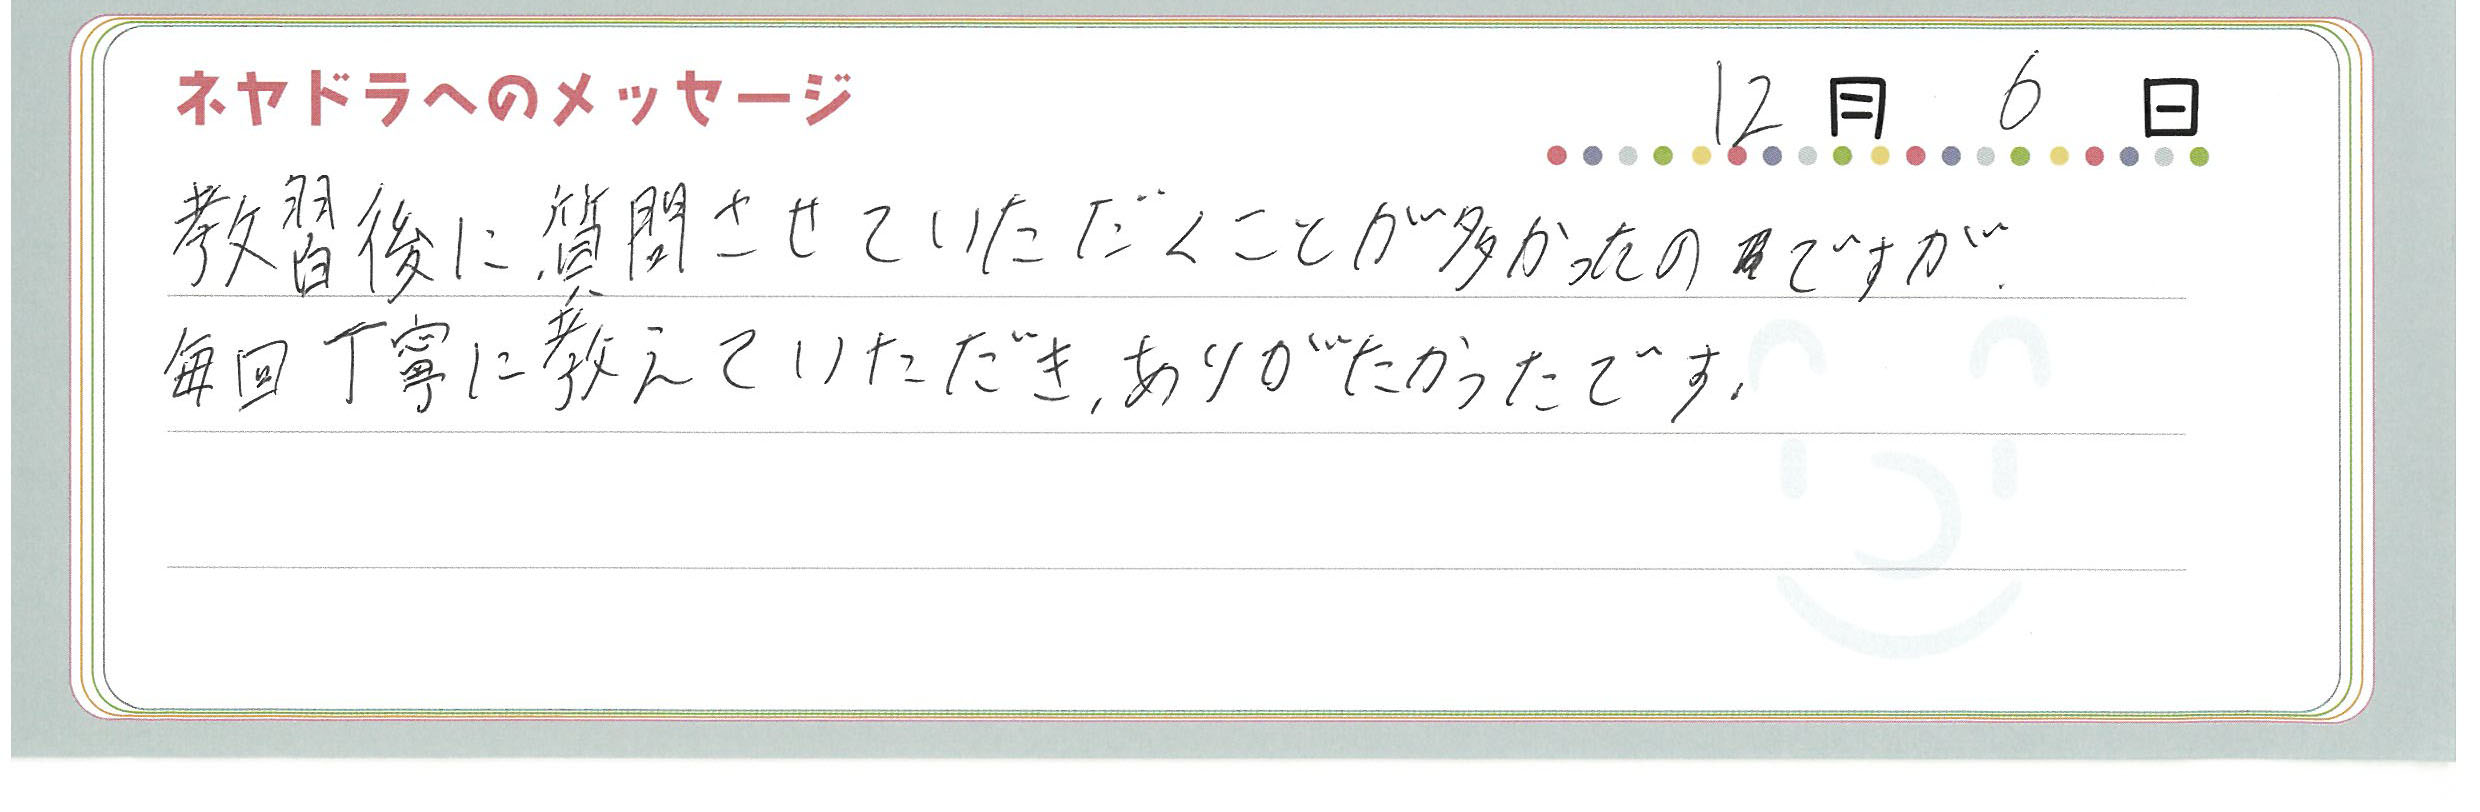 ネヤドラへのメッセージ
12月 6日
教習後に質問させていただくことが多かったのですが、
毎回丁寧に教えていただき、ありがたかったです。